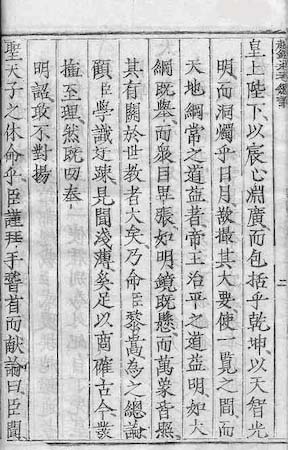 皇上陛下以宸心淵廣而包括乎乾坤以天智光
明而洞燭乎日月故撮其大要使一覧之間而
天地綱常之道益著帝王治平之道益明如大
綱既舉而衆目畢張如明鏡既懸而萬象皆照
其有關於世教者大矣乃命臣黎嵩為之總論
顧臣學識迂疎見聞淺薄奚足以商確古今發
揮至理然既叨奉
明詔敢不對揚
聖天子之休命乎臣謹拜手稽首而献論曰臣聞
二